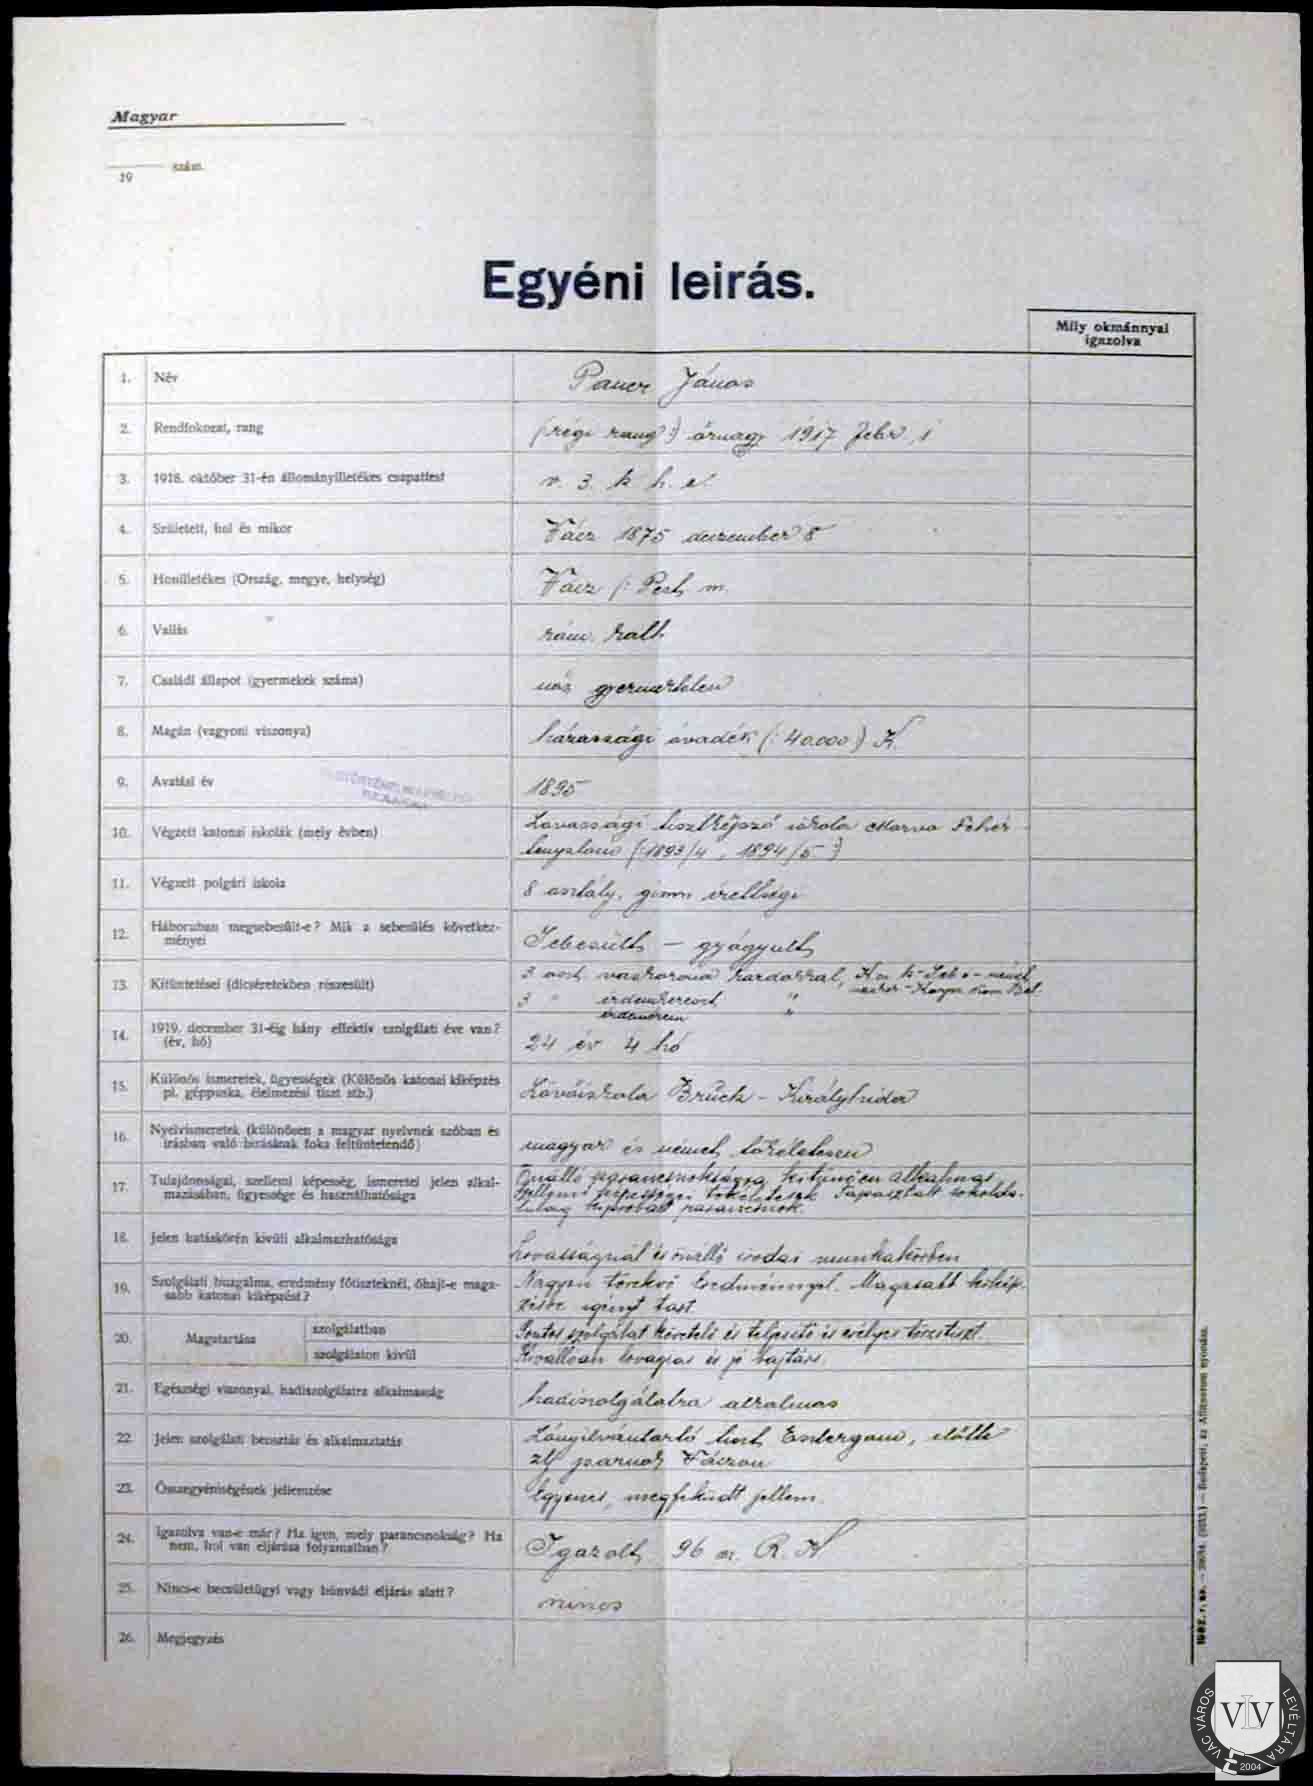 Magyar
19 szám.
Egyéni leirás.
Mily okmánnyal
igazolva
1. Név Pauer János
2. Rendfokozat, rang (régi rang:) őrnagy 1917 febr. 1
3. 1918. október 31-én állományilletékes csapattest v. 3. k. h. e.
4. Született, hol és mikor Vácz 1875 deczember 8
5. Honilletékes (Ország, megye, helység) Vácz (: Pest m.
6. Vallás róm. kath
7. Családi állapot (gyermekek száma) nős gyermektelen
8. Magán (vagyoni viszonya) házassági óvadék (: 40.000) K.
9. Avatási év 1895
10. Végzett katonai iskolák (mely évben) Lovassági tisztképző iskola Morva Fehér-
templom (:1893/4, 1894/5:)
11. Végzett polgári iskola 8 osztály, gimn érettségi
12. Háboruban megsebesült-e? Mik a sebesülés következ-
ményei Sebesült – gyógyult
13. Kitüntetései (dicséretekben részesült) 3 oszt vaskorona kardokkal,
3 " érdemkereszt "
érdemérem "
14. 1919. december 31-éig hány effektív szolgálati éve van?
(év, hó) 24 év 4 hó
15. Különös ismeretek, ügyességek (Különös katonai kiképzés
pl. géppuska, élelmezési tiszt stb.) Lövőiskola Bruck – Királyhida
16. Nyelvismeretek (különösen a magyar nyelvnek szóban és
irásban való birásának foka feltüntetendő) magyar és német tökéletesen
17. Tulajdonságai, szellemi képesség, ismeretei jelen alkal-
mazásában, ügyessége és használhatósága Önálló parancsnokságra kitünően alkalmas
Szellemi képességei tökéletesek. Tapasztalt sokolda-
lulag kipróbált parancsnok.
18. Jelen hatáskörén kívüli alkalmazhatósága Lovasságnál és önálló irodai munkakörben
19. Szolgálati buzgalma, eredmény főtiszteknél, óhajt-e maga-
sabb katonai kiképzést? Nagyon törekvő eredménnyel. Magasabb kikép-
zésre igényt tart.
20. Magatartása szolgálatban Pontos szolgálat követelő és teljesitő is erélyes törzstiszt.
szolgálaton kívül Kiválóan lovagias és jó bajtárs.
21. Egészségi viszonyai, hadiszolgálatra alkalmasság hadiszolgálatra alkalmas
22. Jelen szolgálati beosztás és alkalmaztatás Lónyilvántartó tiszt Esztergom, előtte
zlj parnok Váczon
23. Összegyéniségének jellemzése Egyenes, megfeküdt jellem.
24. Igazolva van-e már? Ha igen, mely parancsnokság? Ha
nem, hol van eljárása folyamatban? Igazolt 96 R. K
25. Nincs-e becsületügyi vagy bűnvádi eljárás alatt? nincs
26. Megjegyzés
VÁC VÁROS LEVÉLTÁRA
VLV
2004